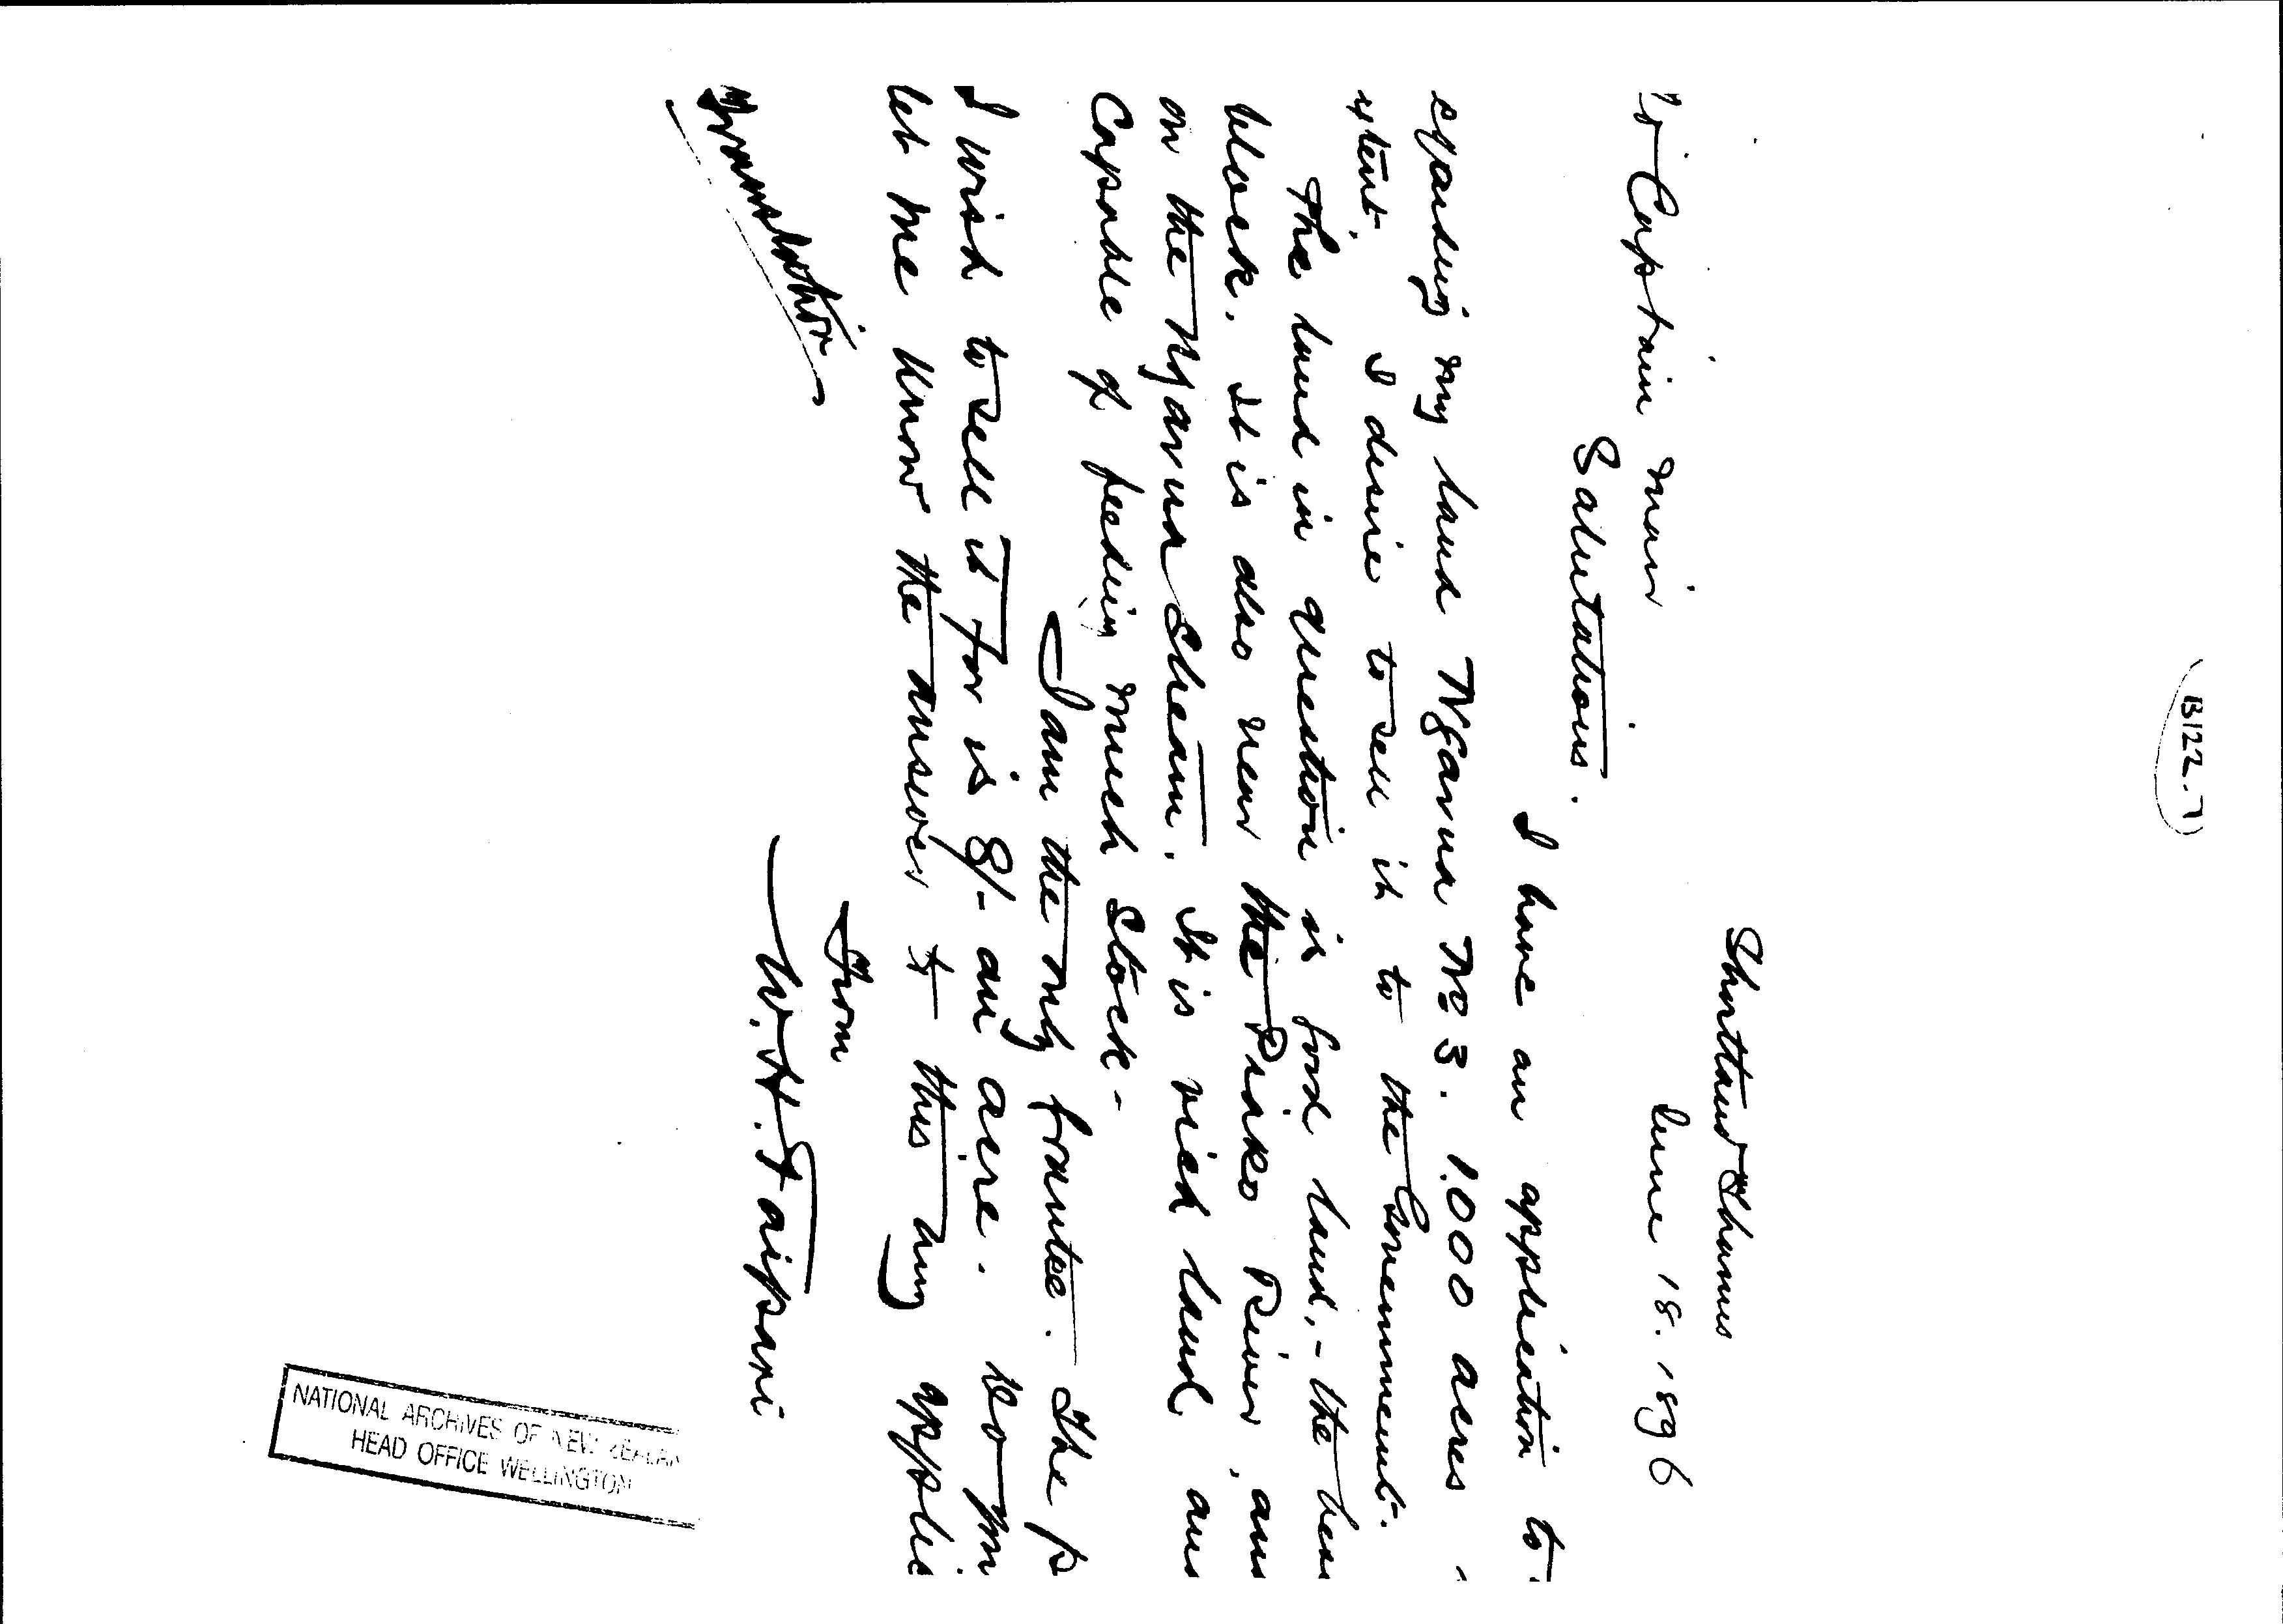 (B122.7)
Shortland Thames
June 18. 1896
To Captain Mair
Salutations.
I have an application to
regarding my land Ngarua No 3. 1.000 acres
extent. I desire to sell it to the Government.
The land in question is good land, - the
block. It is also near the Piako River, and
on the Ngarua Stream. It is rich land and
Capable of feeding much Stock -
I am the only grantee. The p
I wish to sell it for is 8/- an acre. Do you
let me know the answer to this my applic
From
W. H. Taipari
Translation
NATIONAL ARCHIVES OF NEW ZEALAN
HEAD OFFICE WELLINGTON